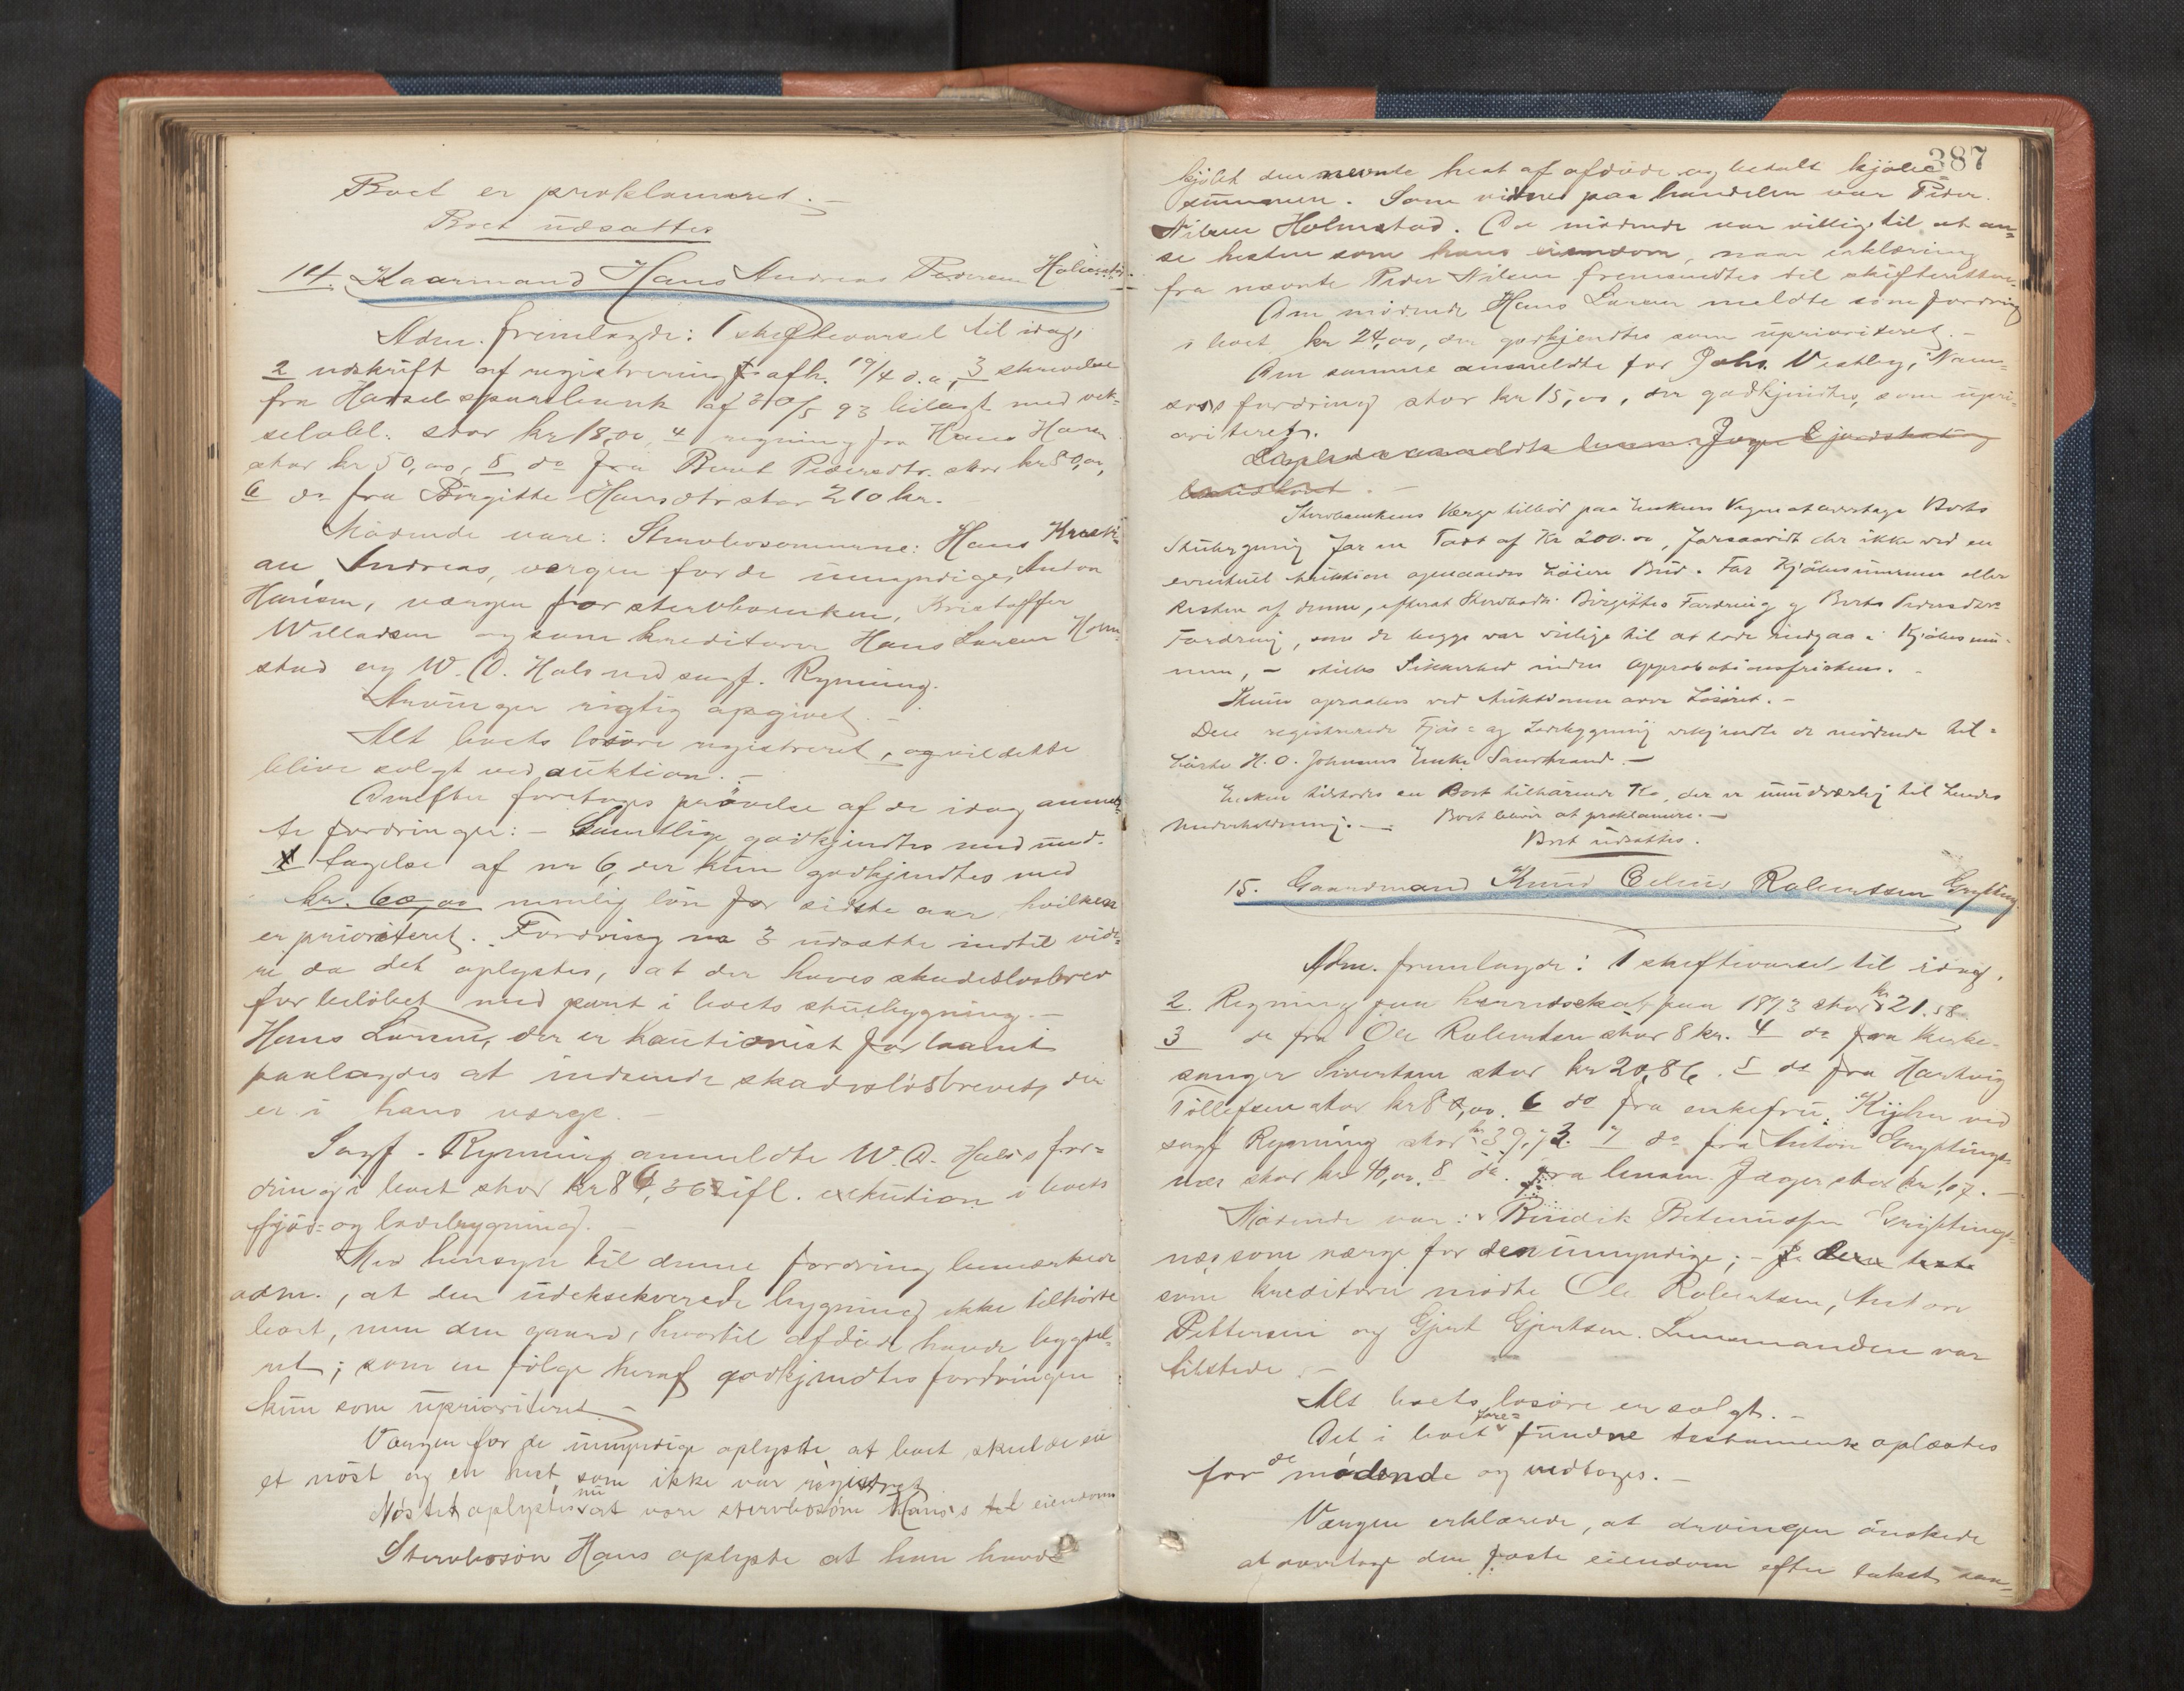 Boet er proklameret. –
Boet udsattes
14. Kaarmand Hans Andreas Pedersen
Adm. fremlagde: 1 skiftevarsel til idag,
2 udskrift af registrering afh. 19/4 d.a, 3 skrivelse
fra Hadsel sparebank af 30/5 93 bilagt med vek-
selobl. stor kr 18,00, 4 regning fra Hans Hansen
stor kr 50,00, 5 do fra Berit Pedersdtr. stor kr 80,00,
6 do fra Birgitte Hansdtr stor 210 kr.
Mødende vare: Stervbosønnerne: Hans Kristi-
an Andreas, vergen for de umyndige, Anton
Hansen, værgen for stervboenken, Kristoffer
Willadsen og som kreditorer Hans Larsen Holm-
stad og W. D. Hals ved sagf. Rynning.
Arvinger rigtig opgivet. –
Alt boets løsøre registreret, og vil dette
blive solgt ved auktion. –
Derefter foretoges prøvelse af de idag anmeld-
te fordringer: – Samtlige godkjendtes med und-
tagelse af nr 6, der kun godkjendtes med
kr. 60,00 nemlig løn for sidste aar, hvilken
er prioriteret. Fordring no 3 udsatte indtil vide-
re da det oplystes, at der haves skadesløsbrev
for beløbet med pant i boets stuebygning. –
Hans Larsen, der er kautionist for laanet
paalagdes at indsende skadesløsbrevet, der
er i hans værge. –
Sagf. Rynning anmeldte W. D. Hals's for-
dring i boet stor kr 86,36 ifl. exekution i boets
fjøs- og ladebygning. –
Med hensyn til denne fordring bemærkede
adm., at den udeksekverede bygning ikke tilhørte
boet, men den gaard, hvortil afdøde havde bygsel-
ret; som en følge heraf godkjendtes fordringen
kun som uprioriteret. –
Værgen for de umyndige oplyste, at boet skulde eie
et nøst og en hest, som ikke var registret
Nøstet oplystes nu at være stervbosøn Hans's eiendom
Stervbosøn Hans oplyste at han havde
387
kjøbt den nævnte hest af afdøde og betalt kjøbe-
summen. Som vidne paa handelen var Peder
Nilsen Holmstad. De mødende var villig til at an-
se hesten som hans eiendom, naar erklæring
fra nævnte Peder Nilsen fremsendtes til skifteretten.
Den mødende Hans Larsen meldte som fordring
i boet kr 24,00, der godkjendtes som uprioriteret. –
Den samme anmeldte for Johs. Vestby,
fordring stor kr 15,00, der godkjendtes, som upri-
oriteret.
Stervboenkens Værge tilbød paa Enkens Vegne at overtage Boets
Stuebygning for en Taxt af Kr 200.00, forsaavidt der ikke ved en
eventuel Auktion opnaaedes høiere Bud. For Kjøbesummen eller
Resten af denne, efterat Stervbodtr. Birgittes Fordring og Berits Pedersdtrs
Fordring, som de begge var villige til at lade indgaa i Kjøbesum-
men, – stilles Sikkerhed inden Approbationsfristen. –
Stuen opraabes ved Auktionen over Løsøret. –
Den registrerede Fjøs- og Ladebygning erkjendte de mødende til-
hørte H. O. Johnsens Enke Sandstrand. –
Enken tilstodes en Boet tilhørende Ko, der er nundværlig til hendes
Underholdning. – Boet bliver at proklamere. –
Boet udsattes.
15. Gaardmand Knud Robertsen
Adm. fremlagde: 1 skiftevarsel til idag,
2. Regning paa herredsskat paa 1893 stor kr 21.58
3 do fra Ole Robertsen stor 8 kr. 4 do fra kirke-
sanger Sivertsen stor kr 20,86. 5 do fra Hartvig
Tollefsen stor kr 8,00. 6 do fra enkefru Kyhn ved
sagf Rynning stor kr 39,73. 7 do fra Anton Gryttings-
nes stor kr 40,00. 8 do. fra lensm. Jæger stor kr 1,07. –
Mødende var: Bendik Gryttings-
næs som værge for den umyndige; –
som kreditorer mødte Ole Robertsen, Anton
Pettersen og Gjert Gjertsen. Lensmanden var
tilstede. –
Alt boets løsøre er solgt. –
Det i boet fore-
fundne testamente oplæstes
for de mødende og vedtoges. –
Værgen erklærede, at arvingen ønskede
at overtage den faste eiendom efter takst, san-